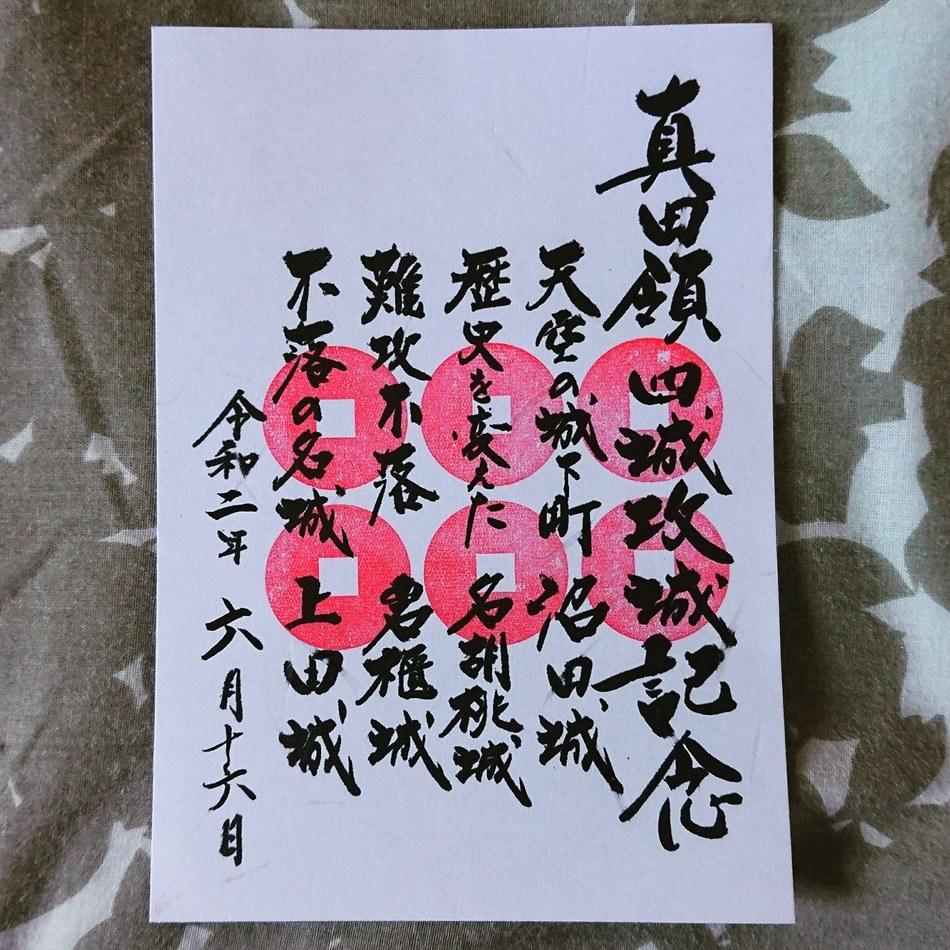 真田領 四城攻城記念
天空の城下町 沼田城
歴史を変えた 名胡桃城
難攻不落 岩櫃城
不落の名城 上田城
令和二年 六月十六日